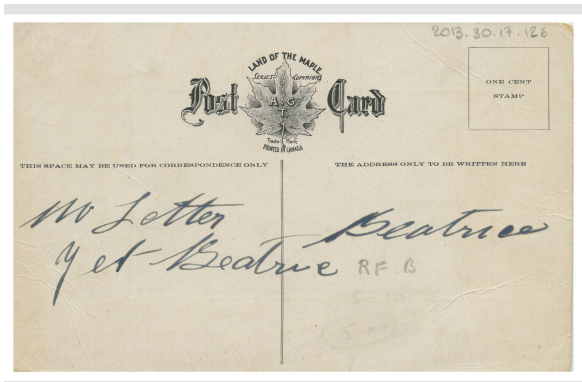 2013.30.17.126
LAND OF THE MAPLE
SERIES COPYRIGHT
Post Card
A.G.
T.
Trade Mark
PRINTED IN CANADA
ONE CENT
STAMP
THIS SPACE MAY BE USED FOR CORRESPONDENCE ONLY
THE ADDRESS ONLY TO BE WRITTEN HERE
no Letter
yet Beatrice
Beatrice
RF. B